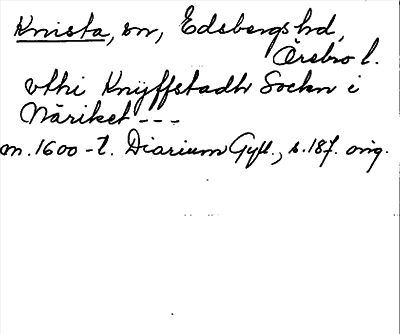 Knista, sn, Edsbergs hd,
Örebro l.
vthi Knÿffstadh Sockn i
Näriket ---
m. 1600-t. Diarium Gyll., s. 187. orig.